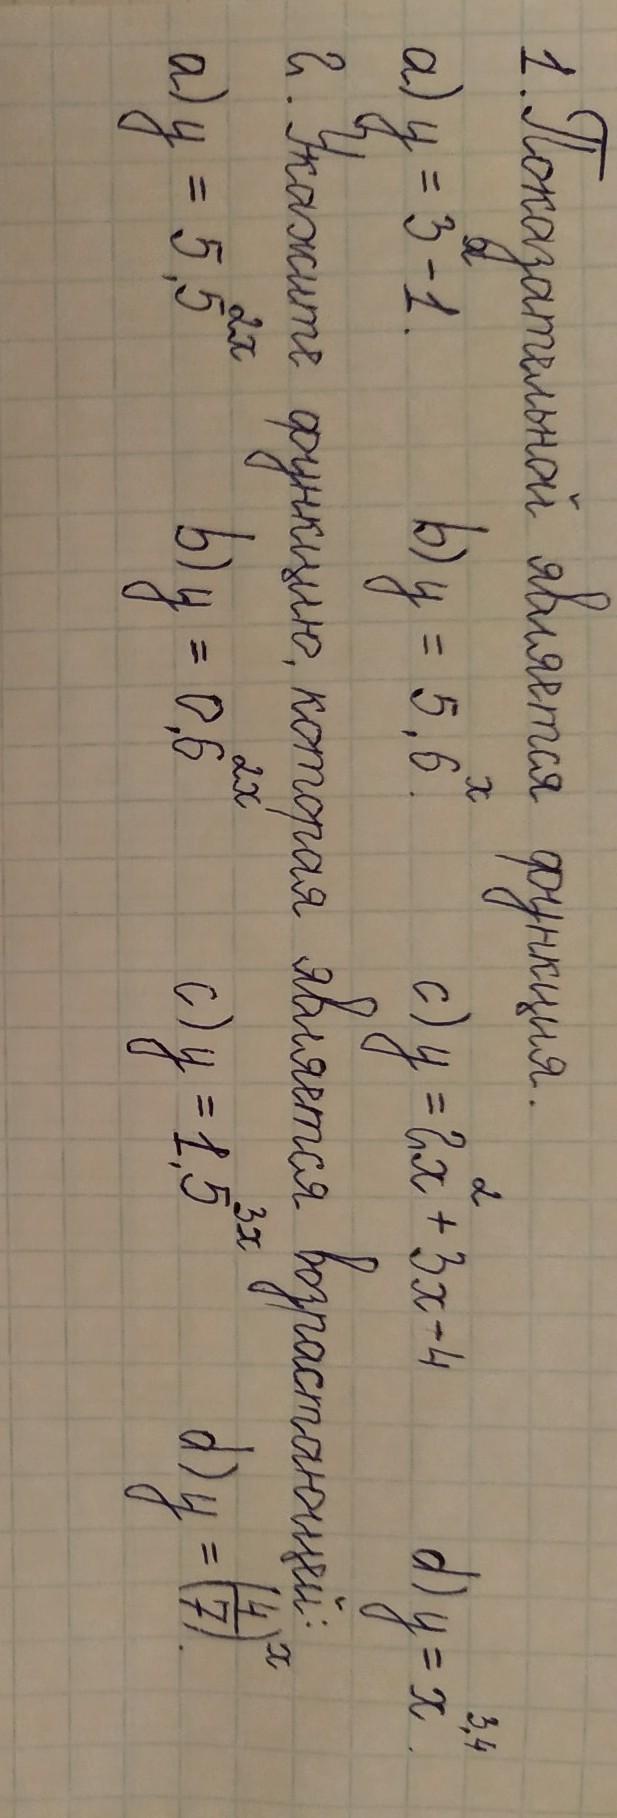 1. Показательной является функция.
a) y = 3² - 1. b) y = 5,6ˣ. c) y = 2x² + 3x - 4 d) y = x³,⁴.
2. Укажите функцию, которая является возрастающей:
a) y = 5,5²ˣ b) y = 0,6²ˣ c) y = 1,5³ˣ d) y = (4/7)ˣ.